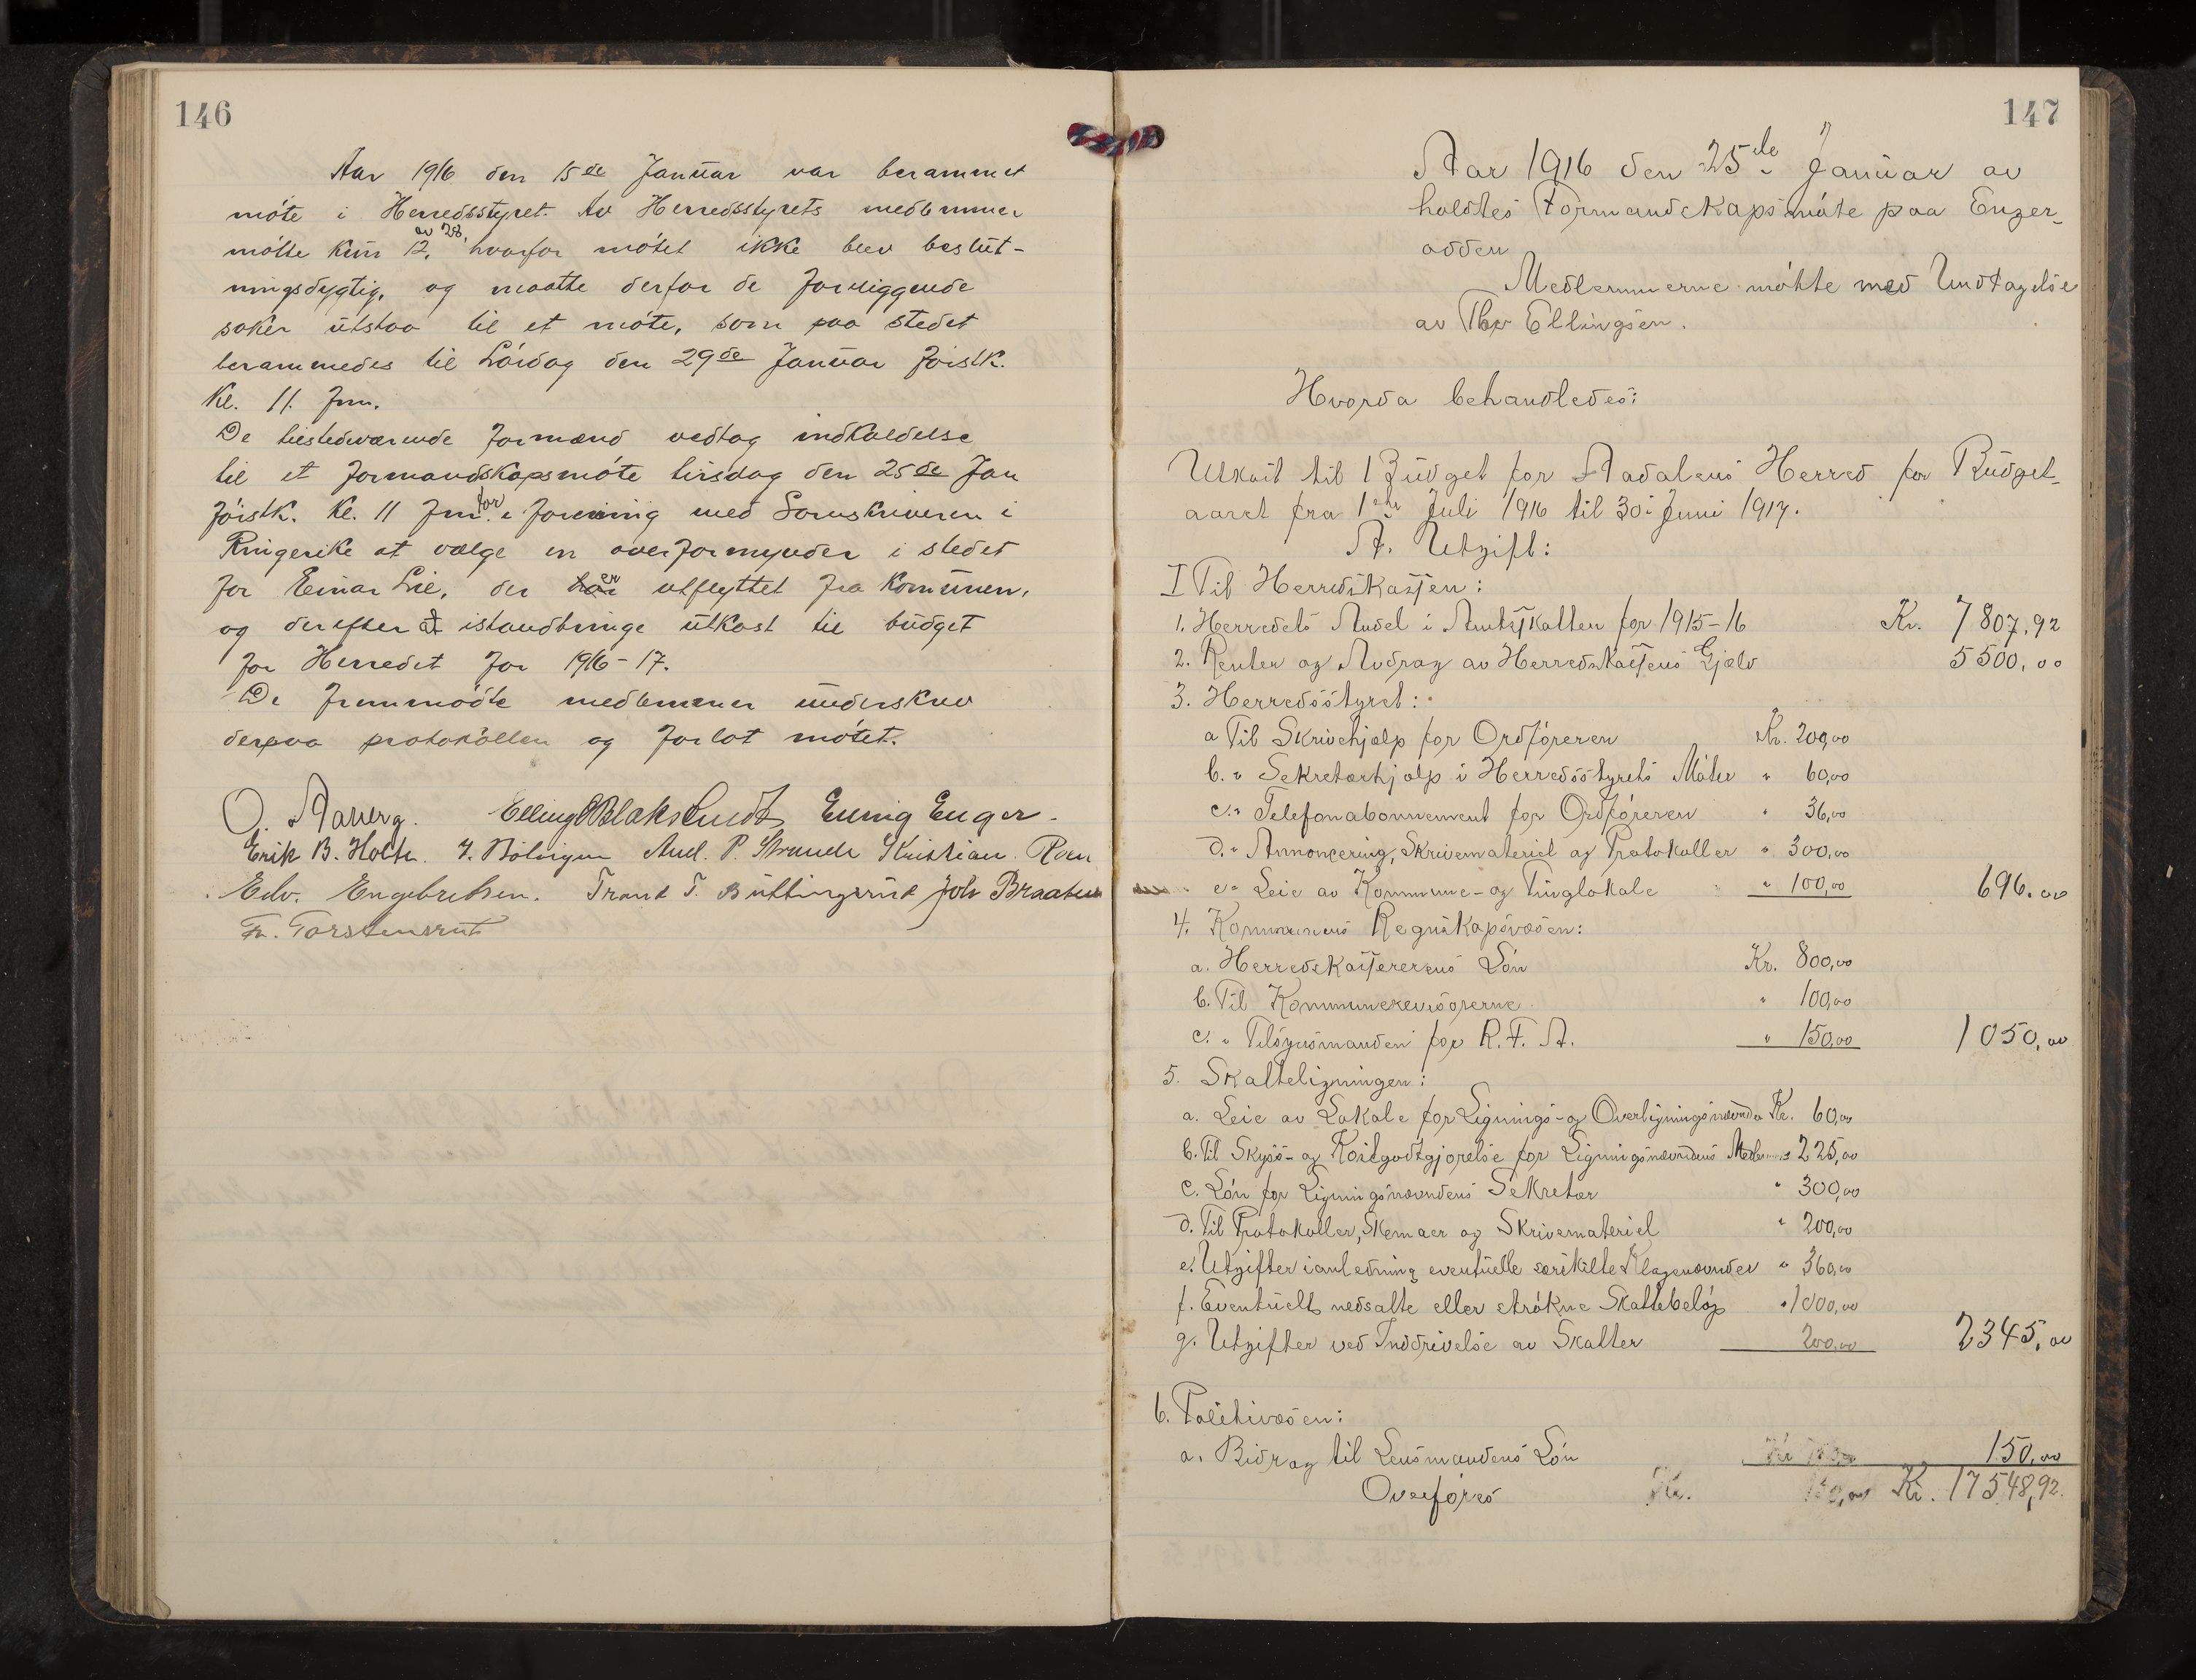 146
Aar 1916 den 15de Januar var berammet
møte i Herredsstyret. Av Herredsstyrets medlemmer
møtte kun 12, av 28, hvorfor møtet ikke blev beslut-
ningsdygtig, og maatte derfor de foreliggende
saker utstaa til et møte, som paa stedet
berammedes til Lørdag den 29de Januar førstk.
Kl. 11. fm.
De tilstedeværende formænd vedtog indkaldelse
til et formandskapsmøte tirsdag den 25de Jan
førstk. Kl. 11 fm. for i forening med Sorenskriveren i
Ringerike at vælge en overformynder i stedet
for Einar Lie, der er utflyttet fra kommunen,
og derefter at istandbringe utkast til budget
for Herredet for 1916-17.
De fremmødte medlemmer underskrev
derpaa protokollen og forlot møtet.
O. Aaberg. Elling O Blakstvedt Ening Enger.
Erik B. Holte. And. P. Strande Kristian Roen
Edv. Engebretsen. Trond T. Buttingsrud Joh Braaten
Fr. Torstensrud
147
Aar 1916 den 25de Januar av
holdtes Formandskapsmøte paa Enger-
odden
Medlemmerne møtte med Undtagelse
av Thv Ellingsen.
Hvorda behandledes:
Utkast til Budget for Aadalens Herred for Budget-
aaret fra 1ste Juli 1916 til 30. Juni 1917.
A. Utgift:
I Til Herredskassen:
1. Herredets Andel i Amtsskatten for 1915-16 Kr. 7807,92
2. Renter og Avdrag av Herredskassens Gjæld 5500,00
3. Herredsstyret:
a Til Skrivehjælp for Ordføreren Kr. 200,00
b. " Sekretærhjælp i Herredsstyrets Møter " 60,00
c. " Telefonabonnement for Ordføreren " 36,00
d. " Annoncering, Skrivemateriel og Protokoller " 300,00
e " Leie av Kommune- og Tinglokale " 100,00 696.00
4. Kommunens Regnskapsvæsen:
a. Herredskassererens Løn Kr. 800,00
b. Til Kommunerevisorerne " 100,00
c. " Tilsynsmanden for R. F. A. " 150,00 1050,00
5. Skatteligningen:
a. Leie av Lokale for Lignings- og Overligningsnævnda Kr. 60,00
b. Til Skyss- og Kostgodtgjørelse for Ligningsnævndens Medlemmer 225,00
c. Løn for Ligningsnævndens Sekretær " 300,00
d. Til Protokoller, Skemaer og Skrivemateriel " 200,00
e. Utgifter i anledning eventuelle særskilte Klagenævnder " 360,00
f. Eventuelt nedsatte eller strøkne Skattebeløp " 1000,00
g. Utgifter ved Inddrivelse av Skatter 200,00 2345,00
6. Politivæsen:
a. Bidrag til Lensmandens Løn 150,00
Overføres Kr. 150,00 Kr. 17548,92.